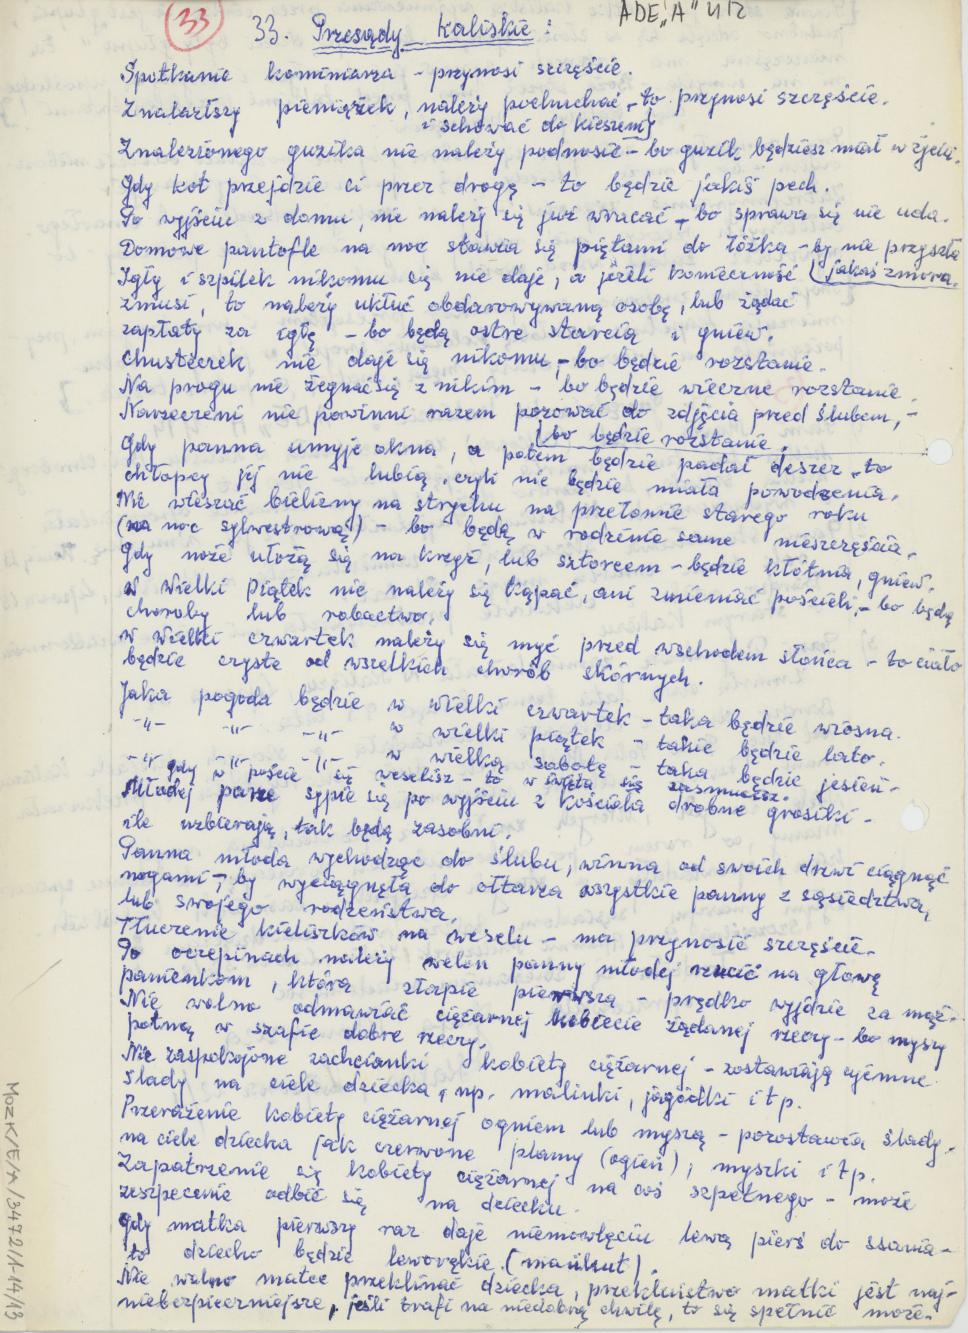 33
ADE „A" UŁ
33. Przesądy kaliskie:
Spotkanie kominiarza - przynosi szczęście.
Znalazłszy pieniążek, należy pochuchać - to przynosi szczęście.
i schować do kieszeni
Znalezionego guzika nie należy podnosić - bo guzik będziesz miał w życiu.
Gdy kot przejdzie ci przez drogę - to będzie jakiś pech.
Po wyjściu z domu, nie należy się już wracać - bo sprawa się nie uda.
Domowe pantofle na noc stawia się piętami do łóżka - by nie przyszła
jakaś zmora.
Igły i szpilek nikomu się nie daje, a jeżeli konieczność
zmusi, to należy ukłuć obdarowywaną osobę, lub żądać
zapłaty za igłę - bo będą ostre starcia i gniew.
Chusteczek nie daje się nikomu, - bo będzie rozstanie.
Na progu nie żegnać się z nikim - bo będzie wieczne rozstanie.
Narzeczeni nie powinni razem pozować do zdjęcia przed ślubem, -
bo będzie rozstanie
Gdy panna umyje okna, a potem będzie padał deszcz - to
chłopcy jej nie lubią, czyli nie będzie miała powodzenia.
Nie wieszać bielizny na strychu na przełomie starego roku
(na noc sylwestrową) - bo będą w rodzinie same nieszczęścia.
Gdy noże ułożą się na krzyż, lub sztorcem - będzie kłótnia, gniew.
W Wielki Piątek nie należy się kąpać, ani zmieniać pościeli, - bo będą
choroby lub robactwo.
W Wielki czwartek należy się myć przed wschodem słońca - to ciało
będzie czyste od wszelkich chorób skórnych.
Jaka pogoda będzie w Wielki czwartek - taka będzie wiosna.
-"- -"- -"- w wielki piątek - takie będzie lato.
-"- -"- -"- w wielką sobotę - taka będzie jesień -
gdy w poście się weselisz - to w święta się zasmucisz.
Młodej parze sypie się po wyjściu z kościoła drobne grosiki -
ile uzbierają, tak będą zasobni.
Panna młoda wychodząc do ślubu, winna od swoich drzwi ciągnąć
nogami, by wyciągnęła do ołtarza wszystkie panny z sąsiedztwa,
lub swojego rodzeństwa.
Tłuczenie kieliszków na weselu - ma przynosić szczęście.
Po oczepinach należy welon panny młodej rzucić na głowę
panienkom, która złapie pierwsza - prędko wyjdzie za mąż.
Nie wolno odmawiać ciężarnej kobiecie żądanej rzeczy - bo myszy
potną w szafie dobre rzeczy.
Nie zaspokojone zachcianki kobiety ciężarnej - zostawiają ujemne
ślady na ciele dziecka, np. malinki, jagódki itp.
Przerażenie kobiety ciężarnej ogniem lub myszą - pozostawia ślady
na ciele dziecka jak czerwone plamy (ogień), myszki itp.
Zapatrzenie się kobiety ciężarnej na coś szpetnego - może
zeszpecenie odbić się na dziecku.
Gdy matka pierwszy raz daje niemowlęciu lewą pierś do ssania -
to dziecko będzie leworękie. (mańkut).
Nie wolno matce przeklinać dziecka, przekleństwo matki jest naj-
niebezpieczniejsze, jeśli trafi na niedobrą chwilę, to się spełnić może.
MOZK/E/A/3472/1-14/13